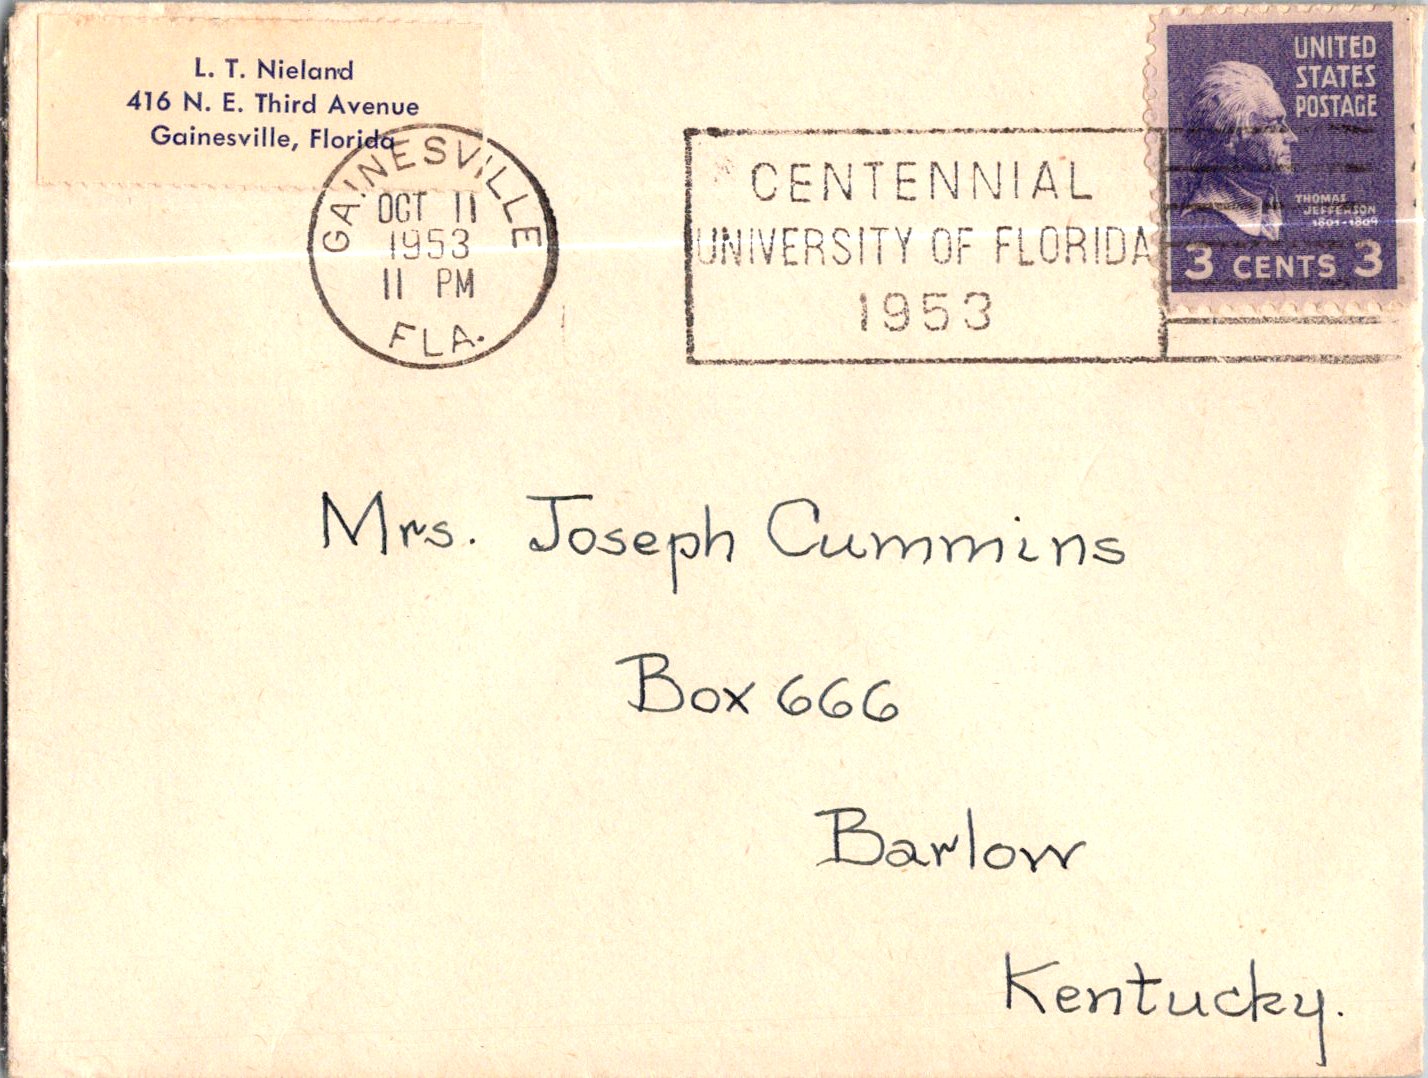 L. T. Nieland
416 N. E. Third Avenue
Gainesville, Florida
GAINESVILLE
OCT 11
1953
11 PM
FLA.
CENTENNIAL
UNIVERSITY OF FLORIDA
1953
UNITED
STATES
POSTAGE
THOMAS
JEFFERSON
1801-1809
3 CENTS 3
Mrs. Joseph Cummins
Box 666
Barlow
Kentucky.